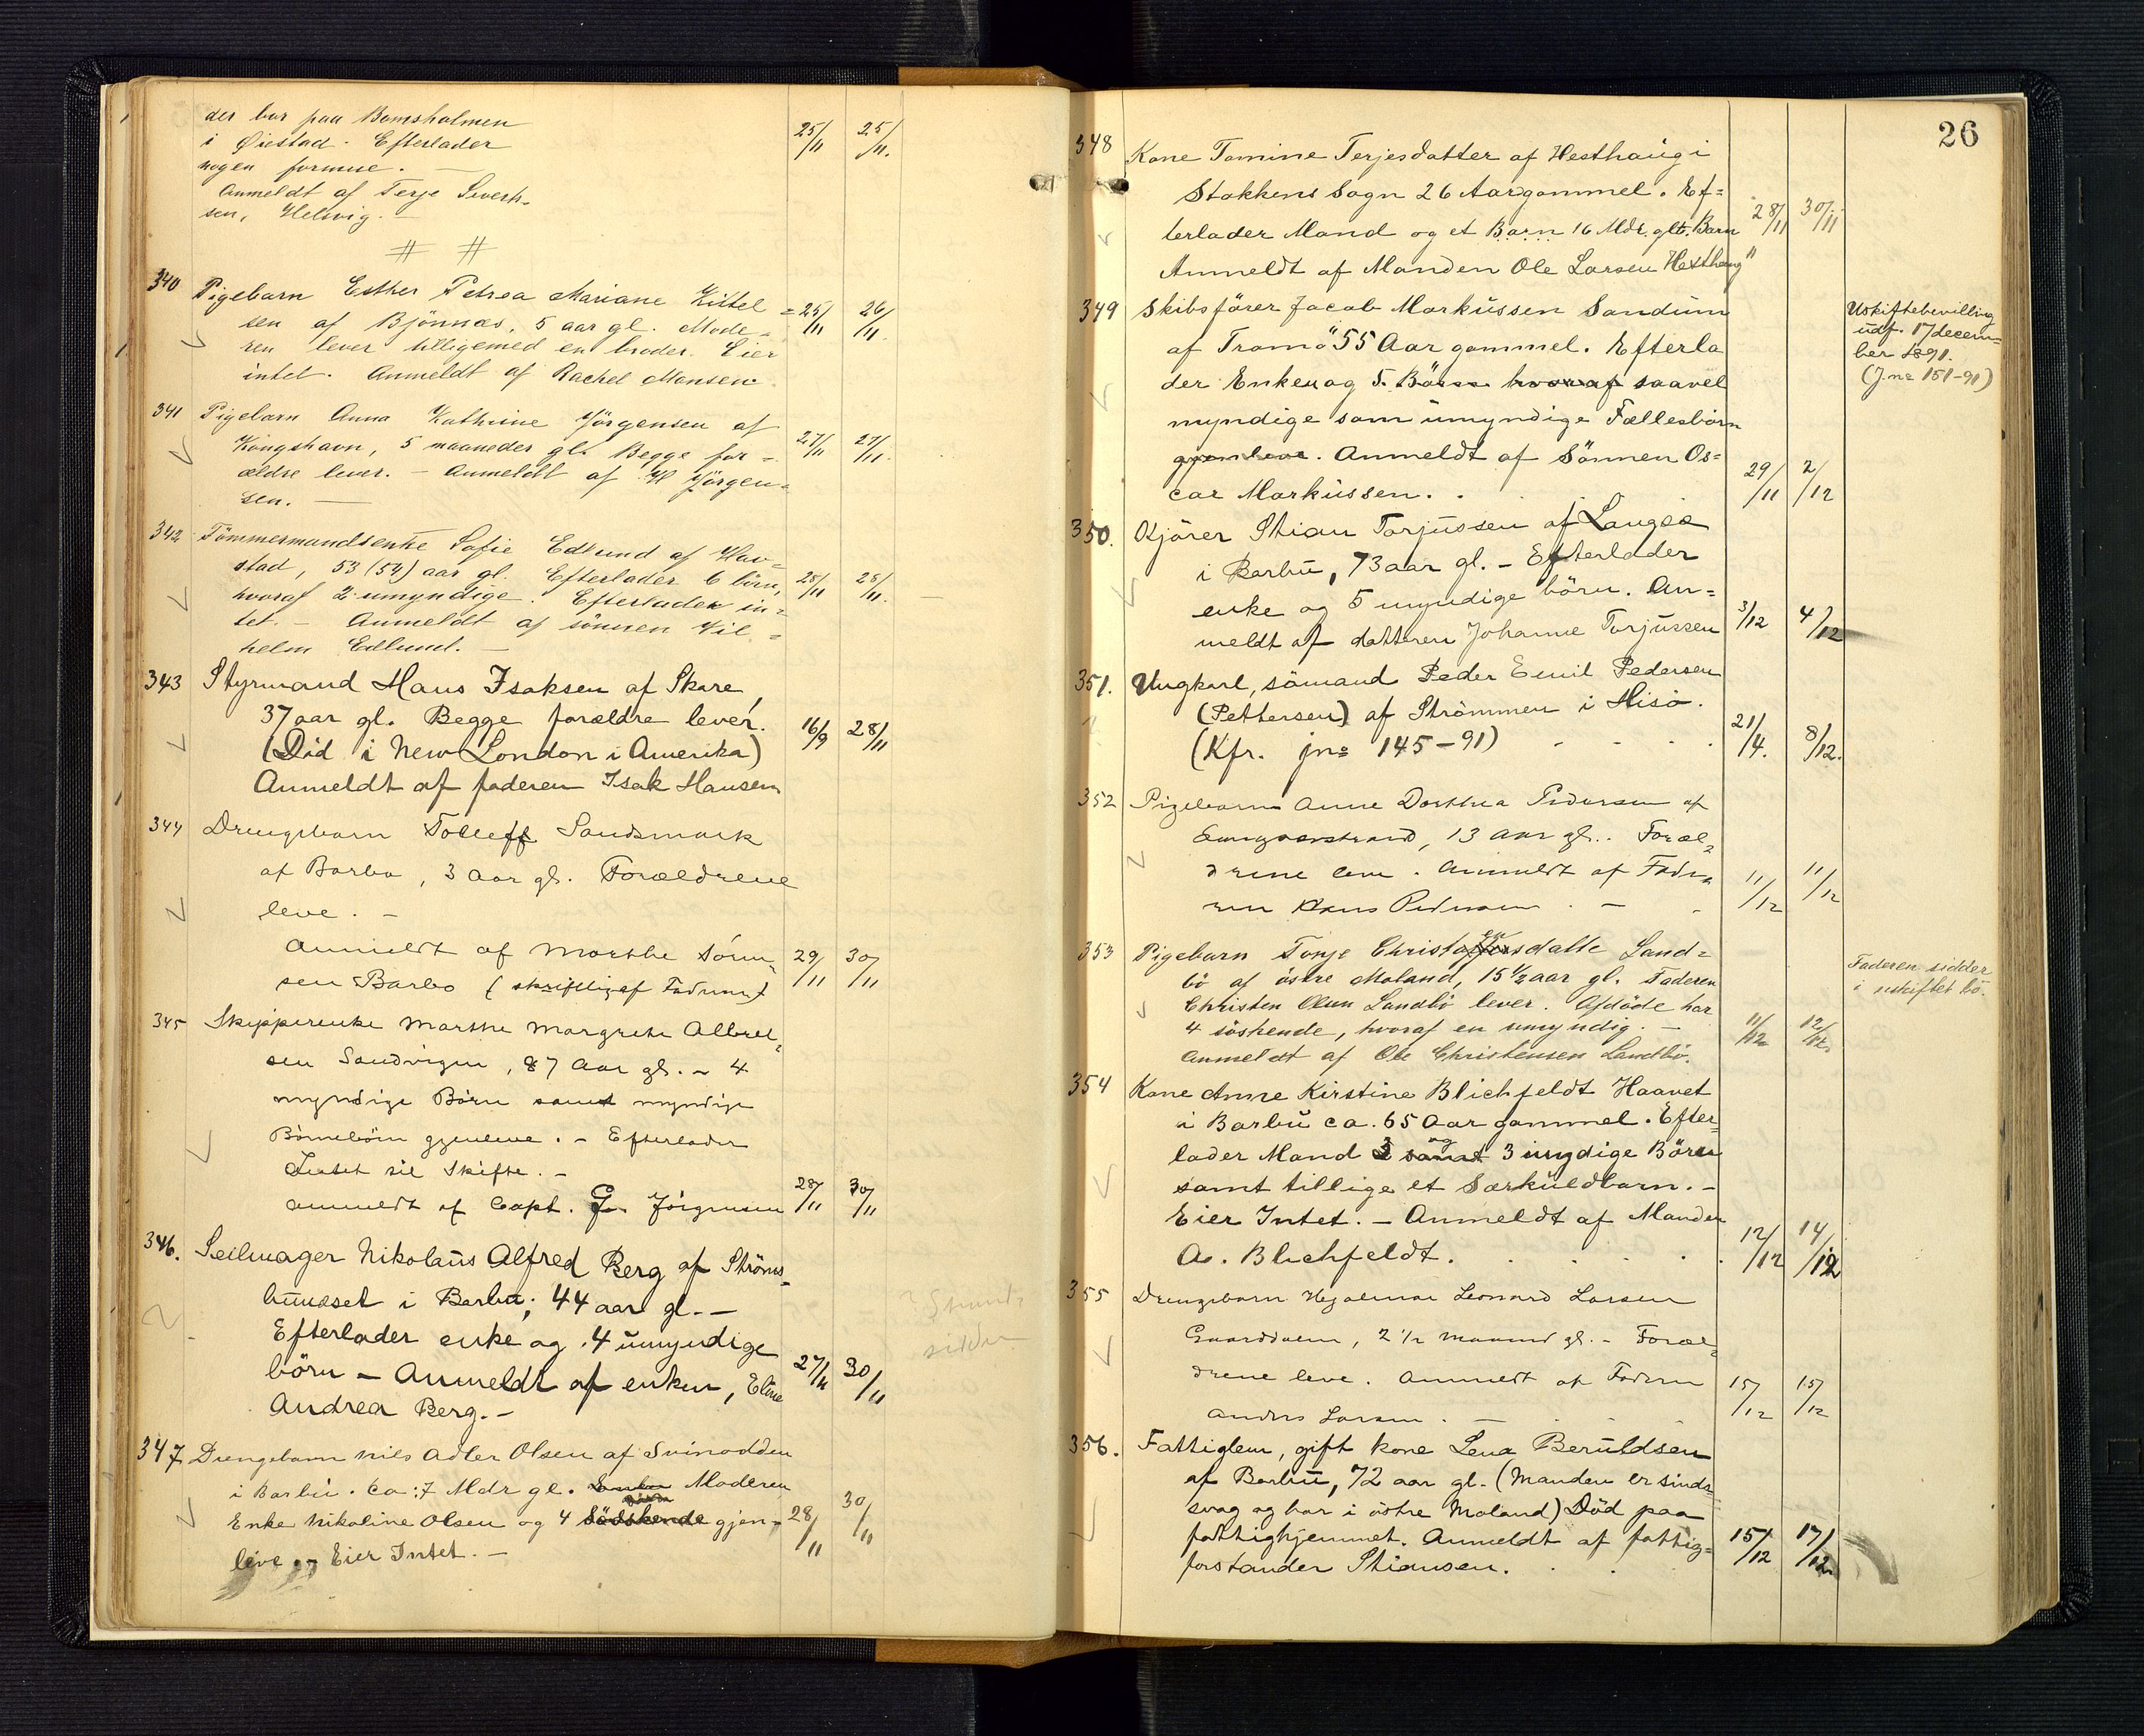 der bor paa Bomsholmen
i Øiestad. Efterlader
nogen formue. —
Anmeldt af Terje Severt-
sen, Helsvig. —
25/11 25/11.
340 Pigebarn Esther Petrea Mariane Kittel=
sen af Bjönnæs, 5 aar gl. Mode-
ren lever tilligemed en broder. Eier
intet. Anmeldt af Rachel Monsen.
25/11 26/11.
341 Pigebarn Anna Kathrine Jörgensen af
Kongshavn, 5 maaneder gl. Begge for=
ældre lever. — Anmeldt af H Jörgen=
sen. —
27/11 27/11.
342 Tömmermandsenke Sofie Edlund af Hav=
stad, 53 (54) aar gl. Efterlader 6 börn,
hvoraf 2 umyndige. Efterlader in=
tet. — Anmeldt af sönnen Vil=
helm Edlund. —
28/11 28/11. —
343 Styrmand Hans Isaksen af Skare,
37 aar gl. Begge forældre lever.
(Död i New London i Amerika)
Anmeldt af faderen Isak Hansen
16/9 28/11
344 Drengebarn Tolleff Sandsmark
af Barbo, 3 Aar gl. Forældrene
leve. —
Anmeldt af Marthe Tönn-
sen Barbo (skriftlig af Faderen)
29/11 30/11
345 Skipperenke Marthe Margrete Albret=
sen Sandvigen, 87 Aar gl. — 4
myndige Börn samt myndige
Börnebörn gjenleve. — Efterlader
Intet til Skifte. —
Anmeldt af Capt. G. Jörgensen
28/11 30/11
346. Seilmager Nikolaus Alfred Berg af Ströms-
bunæset i Barbu; 44 aar gl. —
Efterlader enke og 4 umyndige
börn — Anmeldt af enken, Eline
Andrea Berg. —
27/11 30/11
347 Drengebarn Nils Adler Olsen af Svinodden
i Barbu. Ca: 7 Mdr gl. Moderen
Enke Nikoline Olsen og 4 Södskende gjen=
leve — Eier Intet. —
28/11 30/11
26
348 Kone Tomine Terjesdatter af Hesthaug i
Stokkens Sogn 26 Aar gammel. Ef=
terlader Mand og et Barn 16 Mdr. glt. Barn
Anmeldt af Manden Ole Larsen Hesthaug"
28/11 30/11
349 Skibsförer Jacob Markussen Sandum
af Tromö 55 Aar gammel. Efterla
der Enken og 5. Börn hvoraf saavel
myndige som umyndige Fællesbörn
gjenleve. Anmeldt af Sönnen Os=
car Markussen. .
29/11 2/12
Uskiftebevilling
udf. 17 decem=
ber 1891.
(J.no 151-91)
350. Kjörer Stian Torjussen af Langsæ
i Barbu, 73 aar gl. — Efterlader
enke og 5 myndige börn. An=
meldt af datteren Johanne Torjussen
3/12 4/12
351. Ungkarl, sömand Peder Emil Pedersen
(Pettersen) af Strömmen i Hisö.
(Kfr. jno 145-91)
21/4. 8/12.
352 Pigebarn Anne Dorthea Pedersen af
Langsæstrand, 13 Aar gl.. Foræl=
drene leve. Anmeldt af Fade=
ren Hans Pedersen . —
11/12 11/12
353 Pigebarn Tonje Christoffersdatte Land=
en
bö af östre Moland, 15 1/2 aar gl. Faderen
Christen Olsen Landbö lever. Afdöde har
4 söskende, hvoraf en umyndig. —
Anmeldt af Ole Christensen Landbö.
11/12 12/12.
Faderen sidder
i uskiftet bo.
354 Kone Anne Kirstine Blichfeldt Haavet
i Barbu ca. 65 Aar gammel. Efter=
lader Mand 3 og samt 3 umydige Börn
samt tillige et Særkuldbarn. —
Eier Intet. — Anmeldt af Manden
A. Blichfeldt.
12/12 14/12
355 Drengebarn Hjalmar Leonard Larsen
Gaarddalen, 2 1/2 Maaned gl. — Foræl=
drene leve. Anmeldt af Faderen
Anders Larsen. —
15/12 15/12
356. Fattiglem, gift kone Lena Beruldsen
af Barbu, 72 aar gl. (Manden er sinds-
svag og bor i östre Moland) Död paa
fattighjemmet. Anmeldt af fattig=
forstander Stiansen.
15/12 17/12